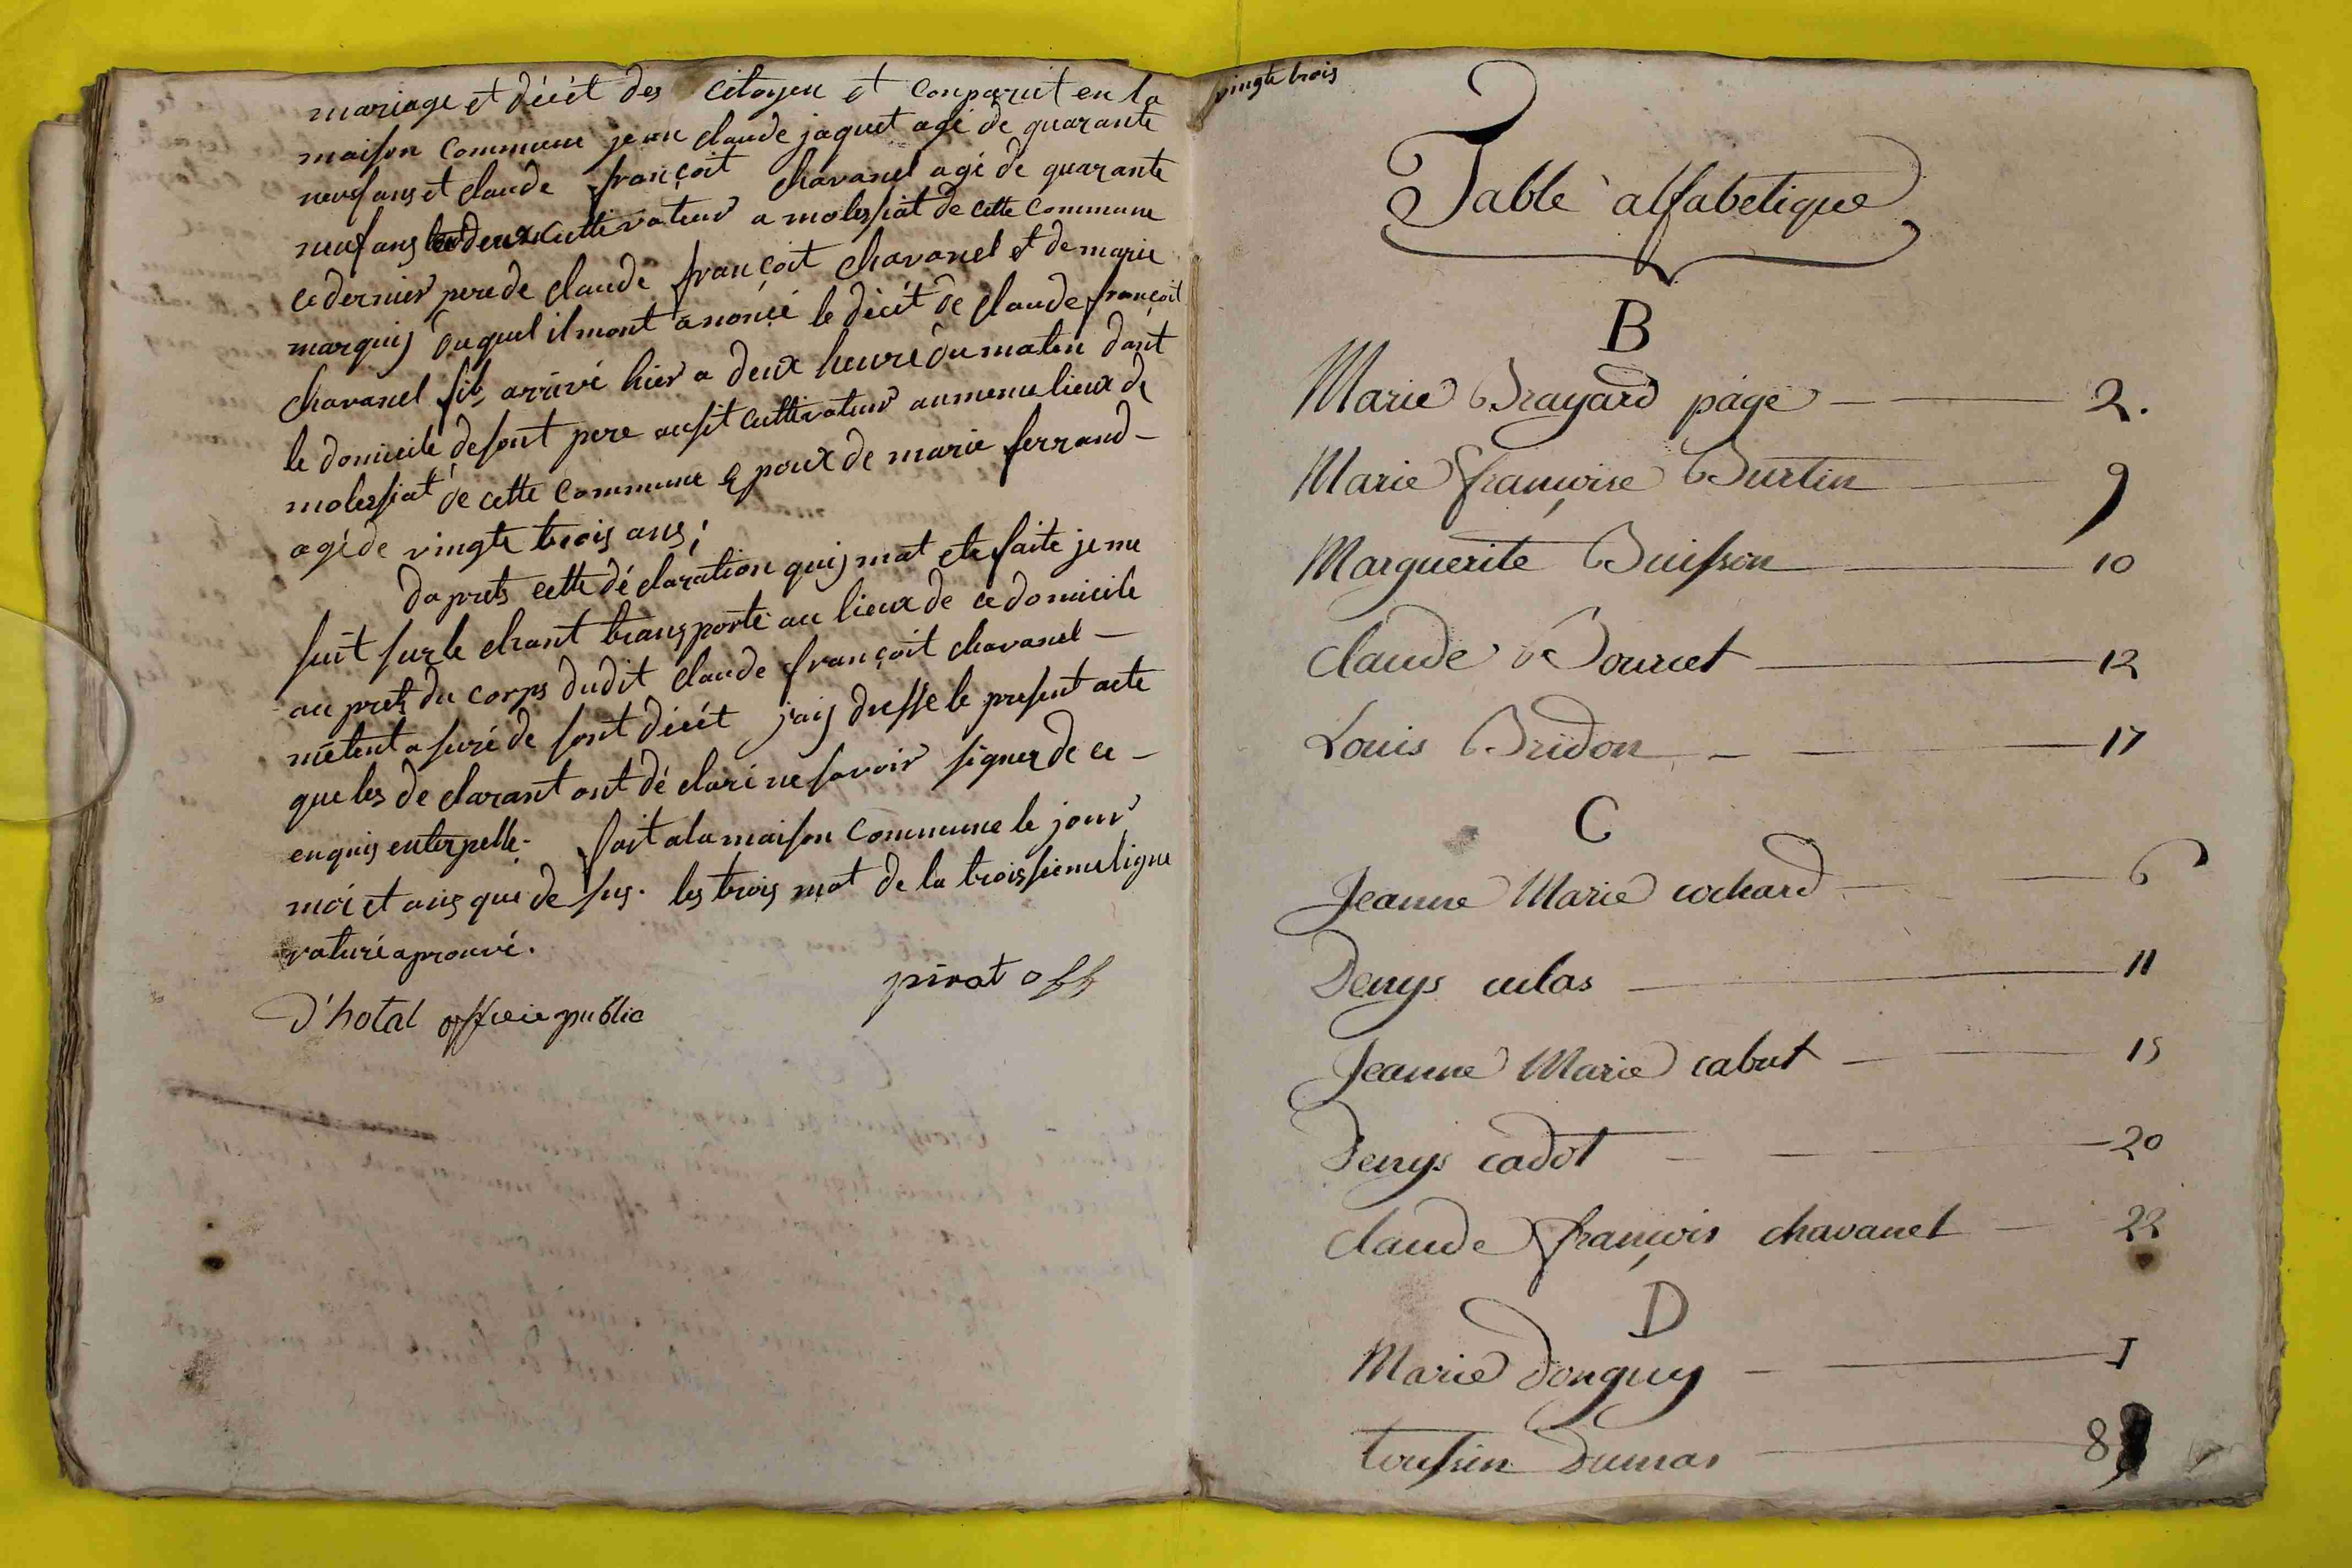 mariage et décèt des citoyen et conparut en la
maison commune jean claude jaquet agé de quarante
neuf ans et claude françoit chavanel agé de quarante
neuf ans cultivateur a molessiat de cette commune
ce dernier pere de claude françoit chavanel et de marie
marquis duquel il mont anoncé le décèt de claude françoit
chavanel fils arrivé hier a deux heure du matin dant
le domicile de sont pere ausit cultivateur au meme lieux de
molessiat de cette commune epoux de marie ferrand –
agé de vingte trois ans ;
daprets cette déclaration quij mat ete faite je me
suit sur le chant transporté au lieux de ce domicile
au prets du corps dudit claude françoit chavanel –
métent asuré de sont décèt jaij dresse le present acte
que les declarant ont déclaré ne savoir signer de ce –
enquis enterpelle. fait a la maison commune le jour
moi et ans que desus. les trois mot de la troissieme ligne
raturé aprouvé.
pirat off
d'hotal officie public
vingte trois
Table alfabetique
B
Marie Brayard page — — 2.
Marie françoise Burtin — 9
Marguerite Buisson — 10
Claude Bourcet — 12
Louis Bridon — — 17
C
Jeanne Marie cochard — — 6
Denys culas — 11
Jeanne Marie cabut — — 15
Denys cadot — — 20
Claude françois chavanel — 22
D
Marie donguy — — 1
toussin Dumas — 8